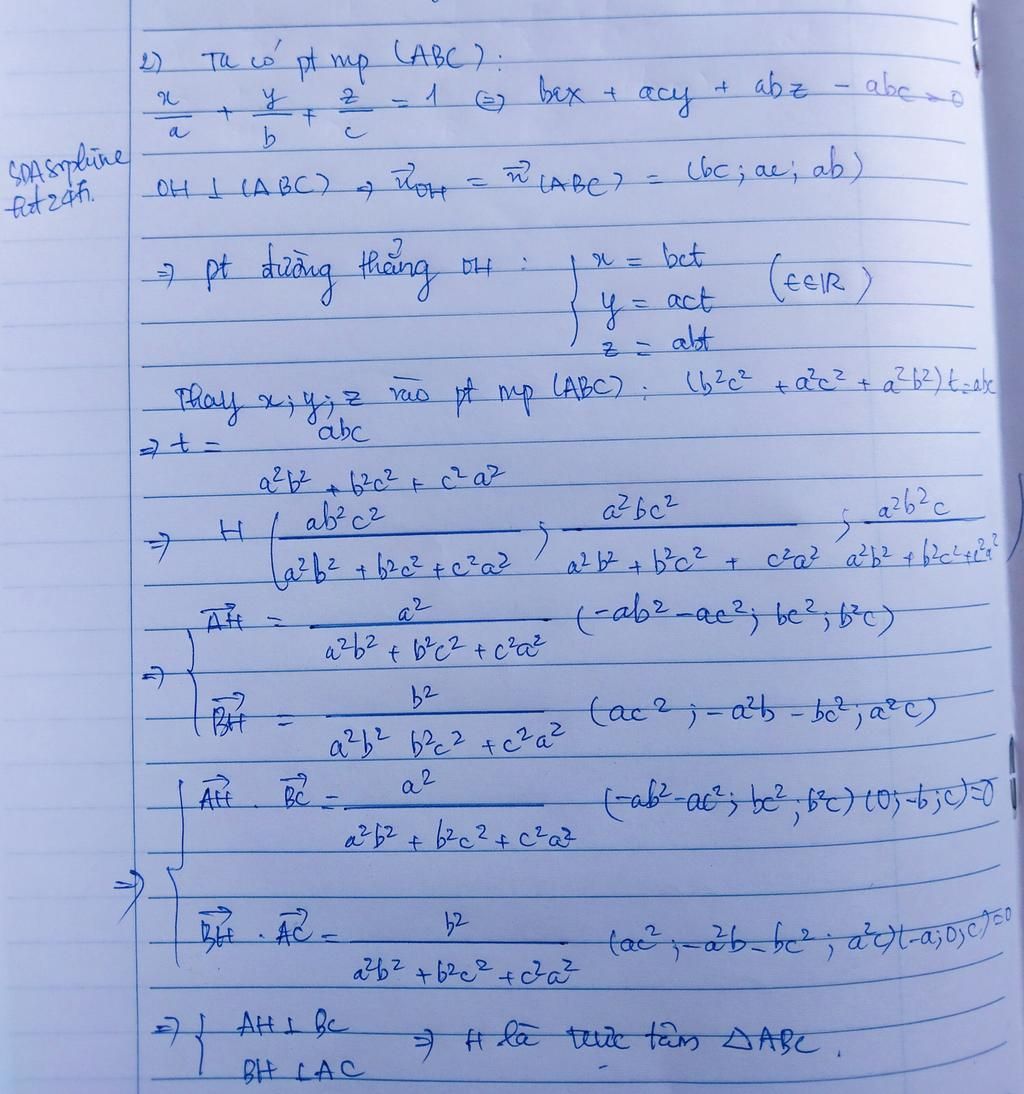 2) Ta có pt mp (ABC):
x/a + y/b + z/c = 1 ⇔ bcx + acy + abz - abc = 0
OH ⊥ (ABC) ⇒ u⃗OH = n⃗(ABC) = (bc; ac; ab)
⇒ pt đường thẳng OH : { x = bct
y = act (t∈R)
z = abt
Thay x; y; z vào pt mp (ABC): (b²c² + a²c² + a²b²)t = abc
⇒ t = abc / a²b² + b²c² + c²a²
⇒ H ( ab²c² / a²b² + b²c² + c²a² ; a²bc² / a²b² + b²c² + c²a² ; a²b²c / a²b² + b²c² + c²a² )
⇒ { AH⃗ = a² / a²b² + b²c² + c²a² (-ab² - ac²; bc²; b²c)
BH⃗ = b² / a²b² b²c² + c²a² (ac²; -a²b - bc²; a²c)
⇒ { AH⃗ . BC⃗ = a² / a²b² + b²c² + c²a² (-ab² - ac²; bc²; b²c) (0; -b; c) = 0
BH⃗ . AC⃗ = b² / a²b² + b²c² + c²a² (ac²; -a²b - bc²; a²c)(-a; 0; c) = 0
⇒ { AH ⊥ BC
BH ⊥ AC ⇒ H là trực tâm ΔABC.